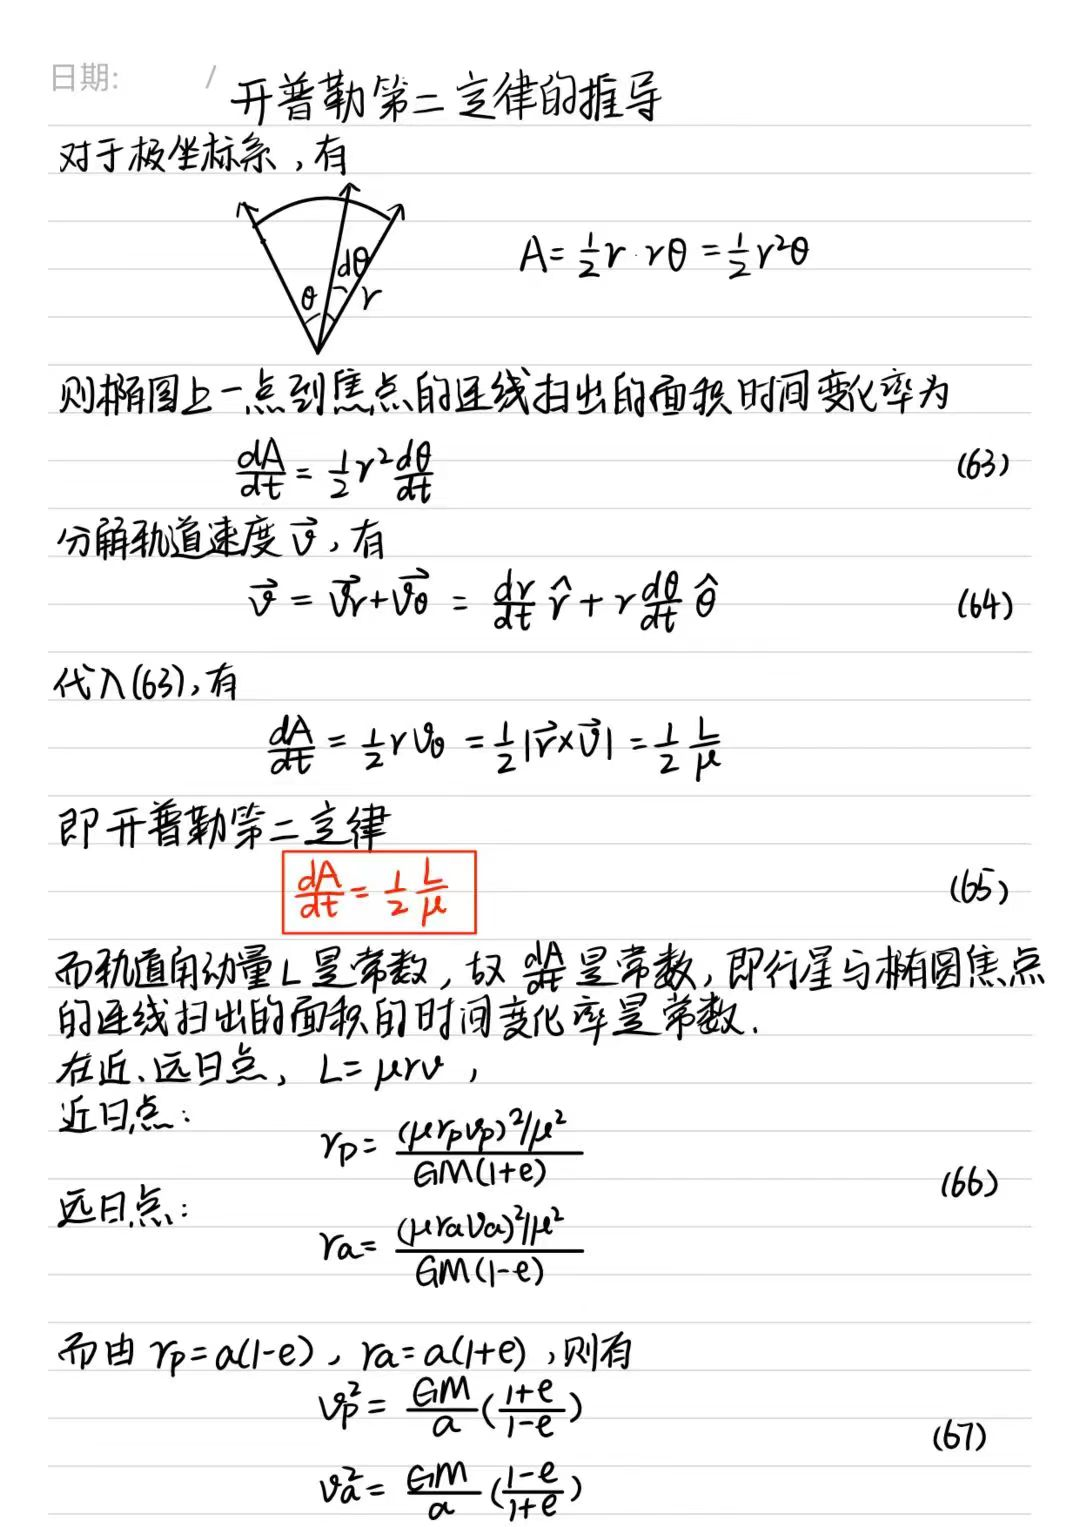 日期: /
开普勒第二定律的推导
对于极坐标系,有
dθ
θ r
A=½r·rθ=½r²θ
则椭圆上一点到焦点的连线扫出的面积时间变化率为
dA/dt = ½r² dθ/dt (63)
分解轨道速度 v⃗, 有
v⃗ = v⃗r + v⃗θ = dr/dt r̂ + r dθ/dt θ̂ (64)
代入(63),有
dA/dt = ½rvθ = ½|r⃗×v⃗| = ½ L/μ
即开普勒第二定律
dA/dt = ½ L/μ (65)
而轨道角动量L是常数,故 dA/dt 是常数,即行星与椭圆焦点
的连线扫出的面积的时间变化率是常数.
在近、远日点, L=μrv,
近日点:
rp = (μrpvp)²/μ² / GM(1+e)
(66)
远日点:
ra = (μrava)²/μ² / GM(1-e)
而由 rp=a(1-e), ra=a(1+e),则有
vp² = GM/a (1+e/1-e)
(67)
va² = GM/a (1-e/1+e)